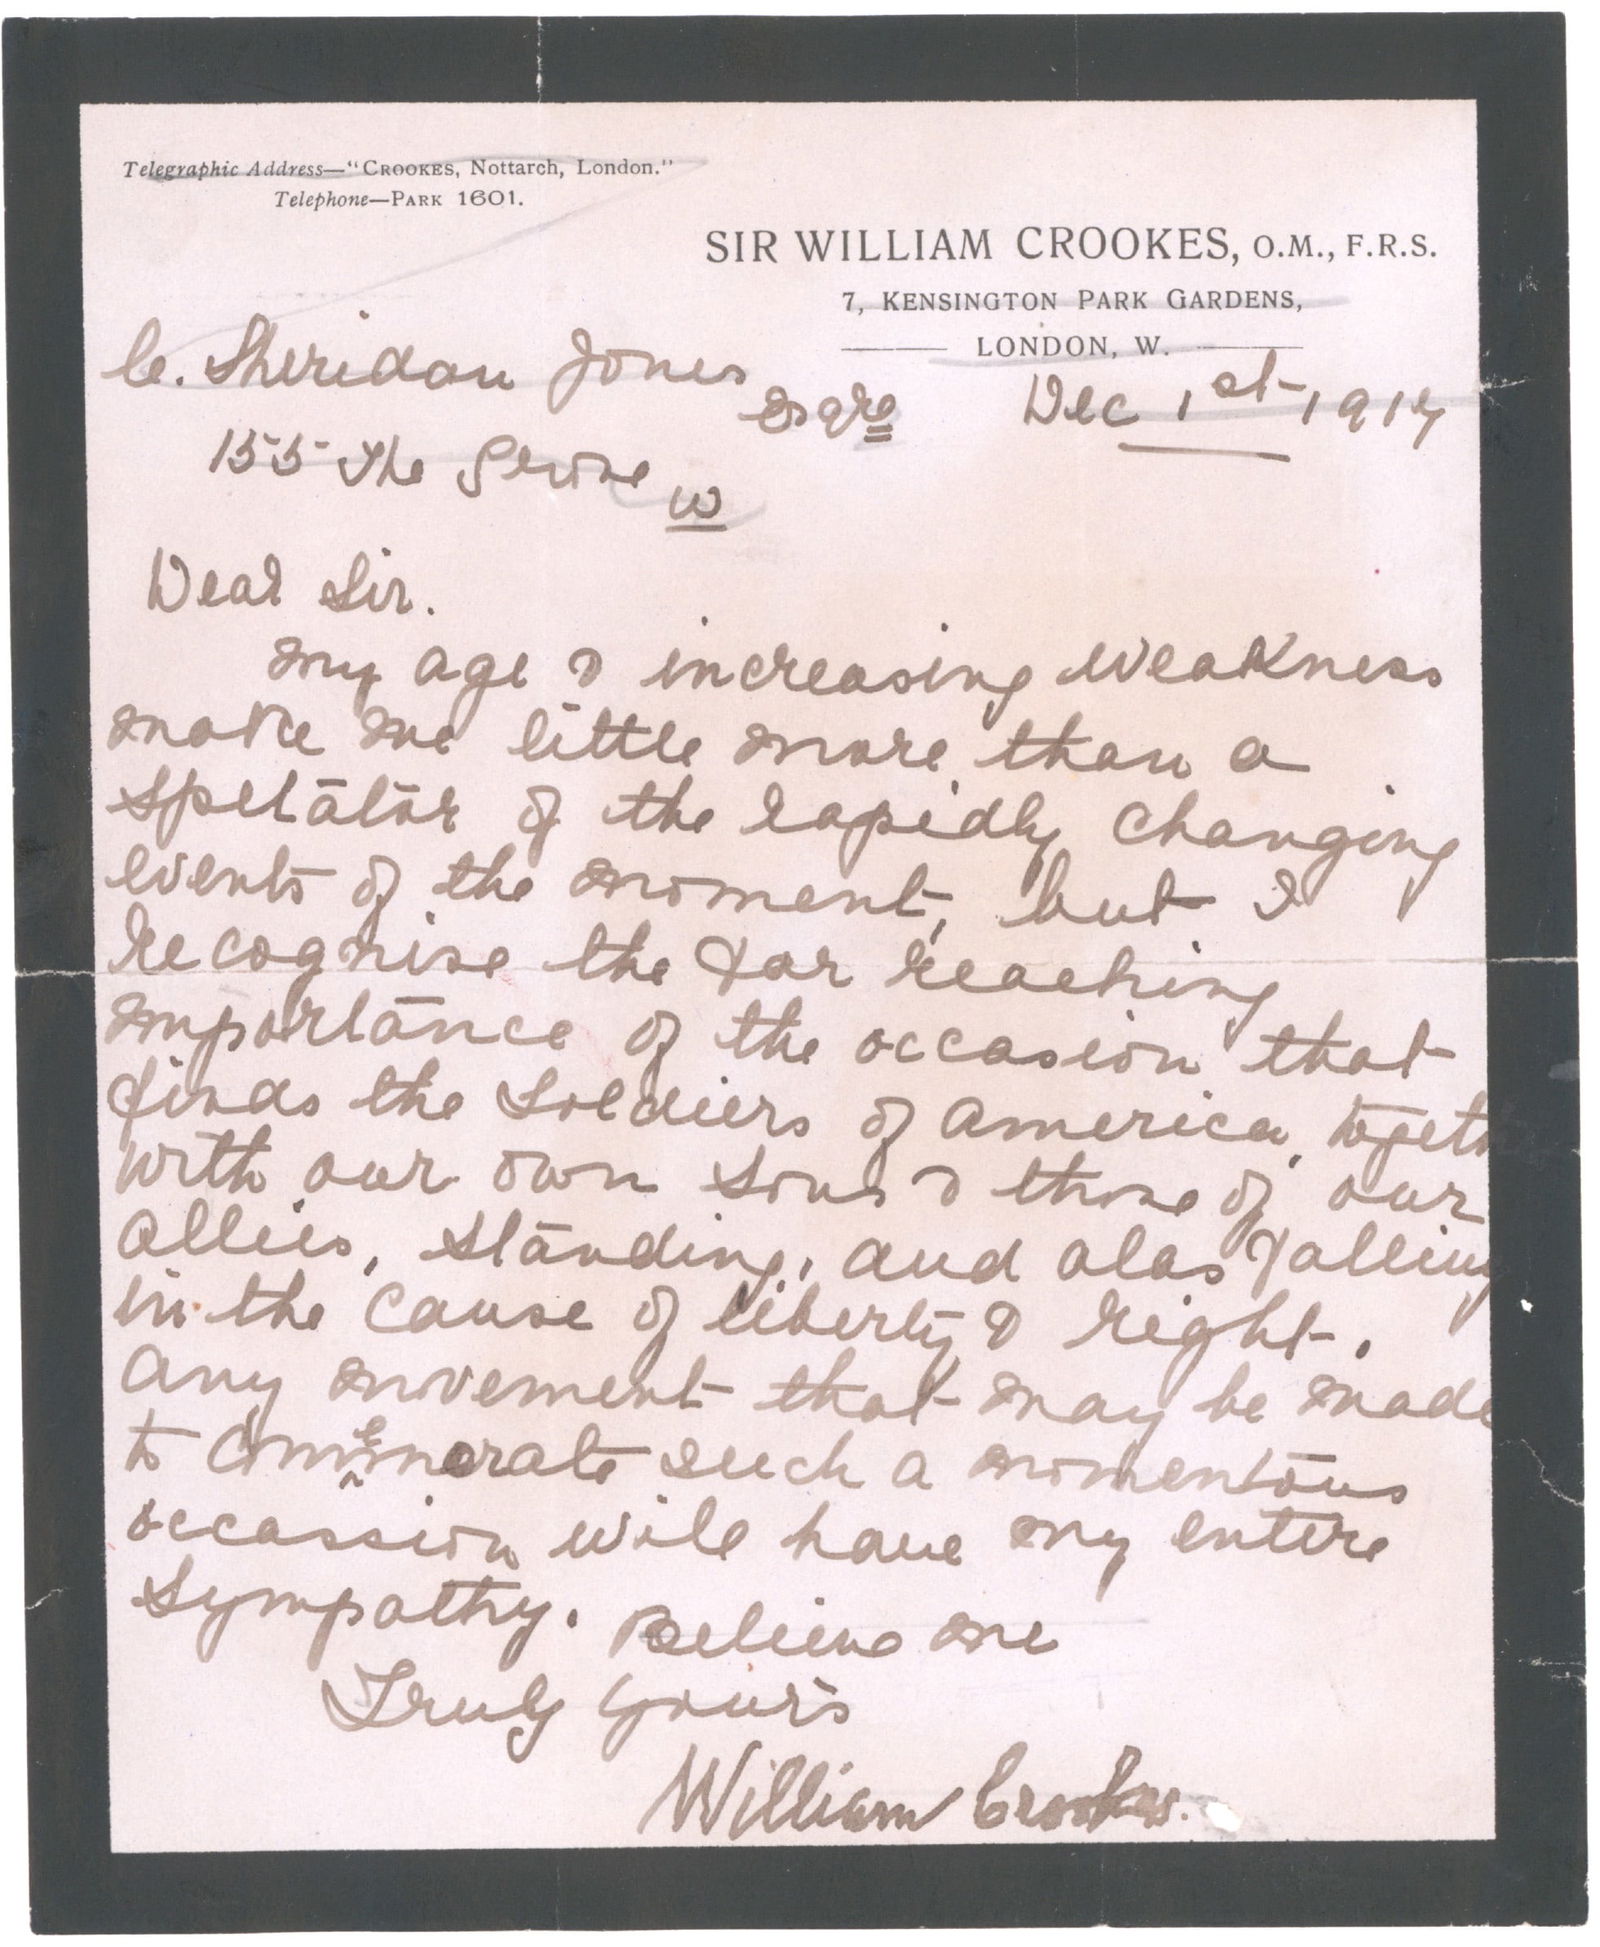 Telegraphic Address—"CROOKES, Nottarch, London."
Telephone—PARK 1601.
SIR WILLIAM CROOKES, O.M., F.R.S.
7, KENSINGTON PARK GARDENS,
LONDON, W.
C. Sheridan Jones Esqre
Dec 1st 1917
155 The Grove W
Dear Sir.
My age & increasing weakness
make me little more than a
spectator of the rapidly changing
events of the moment, but I
recognise the far reaching
importance of the occasion that
finds the soldiers of America, togeth
with our own sons & those of our
allies, standing, and alas falling
in the cause of liberty & right.
Any movement that may be made
to commemorate such a momentous
occassion will have my entire
sympathy. Believe me
Truly yours
William Crookes.